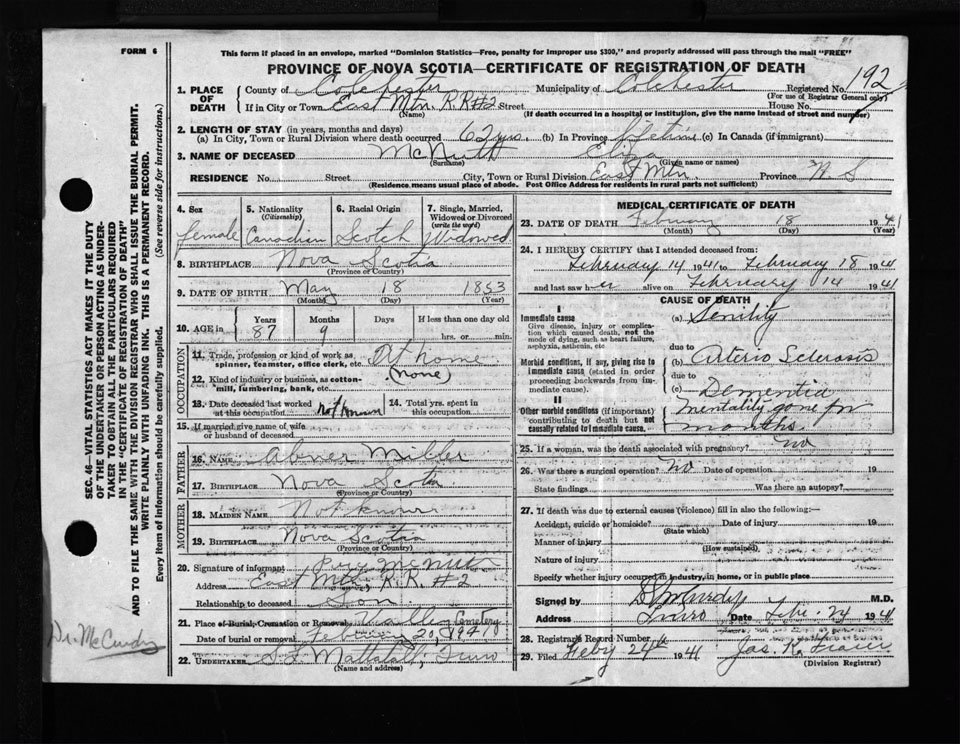 FORM 6
This form if placed in an envelope, marked "Dominion Statistics—Free, penalty for improper use $300," and properly addressed will pass through the mail "FREE"
PROVINCE OF NOVA SCOTIA—CERTIFICATE OF REGISTRATION OF DEATH
1. PLACE OF DEATH County of Colchester Municipality of Colchester Registered No. 192
(For use of Registrar General only)
If in City or Town East Mtn. R.R #2 Street House No.
(Name) (If death occurred in a hospital or institution, give the name instead of street and number)
2. LENGTH OF STAY (in years, months and days)
(a) In City, Town or Rural Division where death occurred 62 yrs. (b) In Province Lifetime (c) In Canada (if immigrant)
3. NAME OF DECEASED McNutt Eliza
(Surname) (Given name or names)
RESIDENCE No. Street City, Town or Rural Division East Mtn. Province N.S
(Residence means usual place of abode. Post Office Address for residents in rural parts not sufficient)
4. Sex female
5. Nationality (Citizenship) Canadian
6. Racial Origin Scotch
7. Single, Married, Widowed or Divorced (write the word) Widowed
8. BIRTHPLACE Nova Scotia
(Province or Country)
9. DATE OF BIRTH May 18 1853
(Month) (Day) (Year)
10. AGE in Years 87 Months 9 Days If less than one day old
hrs. or min.
OCCUPATION
11. Trade, profession or kind of work as spinner, teamster, office clerk, etc. At home
12. Kind of industry or business, as cotton-mill, lumbering, bank, etc. (none)
13. Date deceased last worked at this occupation not known
14. Total yrs. spent in this occupation
15. If married give name of wife or husband of deceased
FATHER
16. NAME Abner Miller
17. BIRTHPLACE Nova Scotia
(Province or Country)
MOTHER
18. MAIDEN NAME Not known
19. BIRTHPLACE Nova Scotia
(Province or Country)
20. Signature of informant McNutt
Address East Mtn, R.R. #2
Relationship to deceased Son
21. Place of Burial, Cremation or Removal Valley Cemetery
Date of burial or removal February 20 1941
22. UNDERTAKER Truro
(Name and address)
MEDICAL CERTIFICATE OF DEATH
23. DATE OF DEATH February 18 1941
(Month) (Day) (Year)
24. I HEREBY CERTIFY that I attended deceased from:
February 14 1941 to February 18 1941
and last saw her alive on February 14 1941
CAUSE OF DEATH
I
Immediate cause (a) Senility
Give disease, injury or complication which caused death, not the mode of dying, such as heart failure, asphyxia, asthenia, etc
due to
Morbid conditions, if any, giving rise to immediate cause (stated in order proceeding backwards from immediate cause). (b) Arterio Sclerosis
due to
(c) Dementia
II
Other morbid conditions (if important) contributing to death but not causally related to immediate cause. mentality gone for
months.
25. If a woman, was the death associated with pregnancy? no
26. Was there a surgical operation? no Date of operation 19
State findings Was there an autopsy?
27. If death was due to external causes (violence) fill in also the following:—
Accident, suicide or homicide? Date of injury 19
(State which)
Manner of injury
(How sustained)
Nature of injury
Specify whether injury occurred in industry, in home, or in public place
Signed by M.D.
Address Truro Date Feb. 24 1941
28. Registrar's Record Number
29. Filed Feby 24th 1941 Jas. K. Fraser
(Division Registrar)
SEC. 46—VITAL STATISTICS ACT MAKES IT THE DUTY
OF THE UNDERTAKER OR PERSON ACTING AS UNDER-
TAKER TO OBTAIN ALL THE PARTICULARS REQUIRED
IN THE "CERTIFICATE OF REGISTRATION OF DEATH"
AND TO FILE THE SAME WITH THE DIVISION REGISTRAR WHO SHALL ISSUE THE BURIAL PERMIT.
WRITE PLAINLY WITH UNFADING INK. THIS IS A PERMANENT RECORD.
Every item of information should be carefully supplied. (See reverse side for instructions.)
Dr. McCurdy